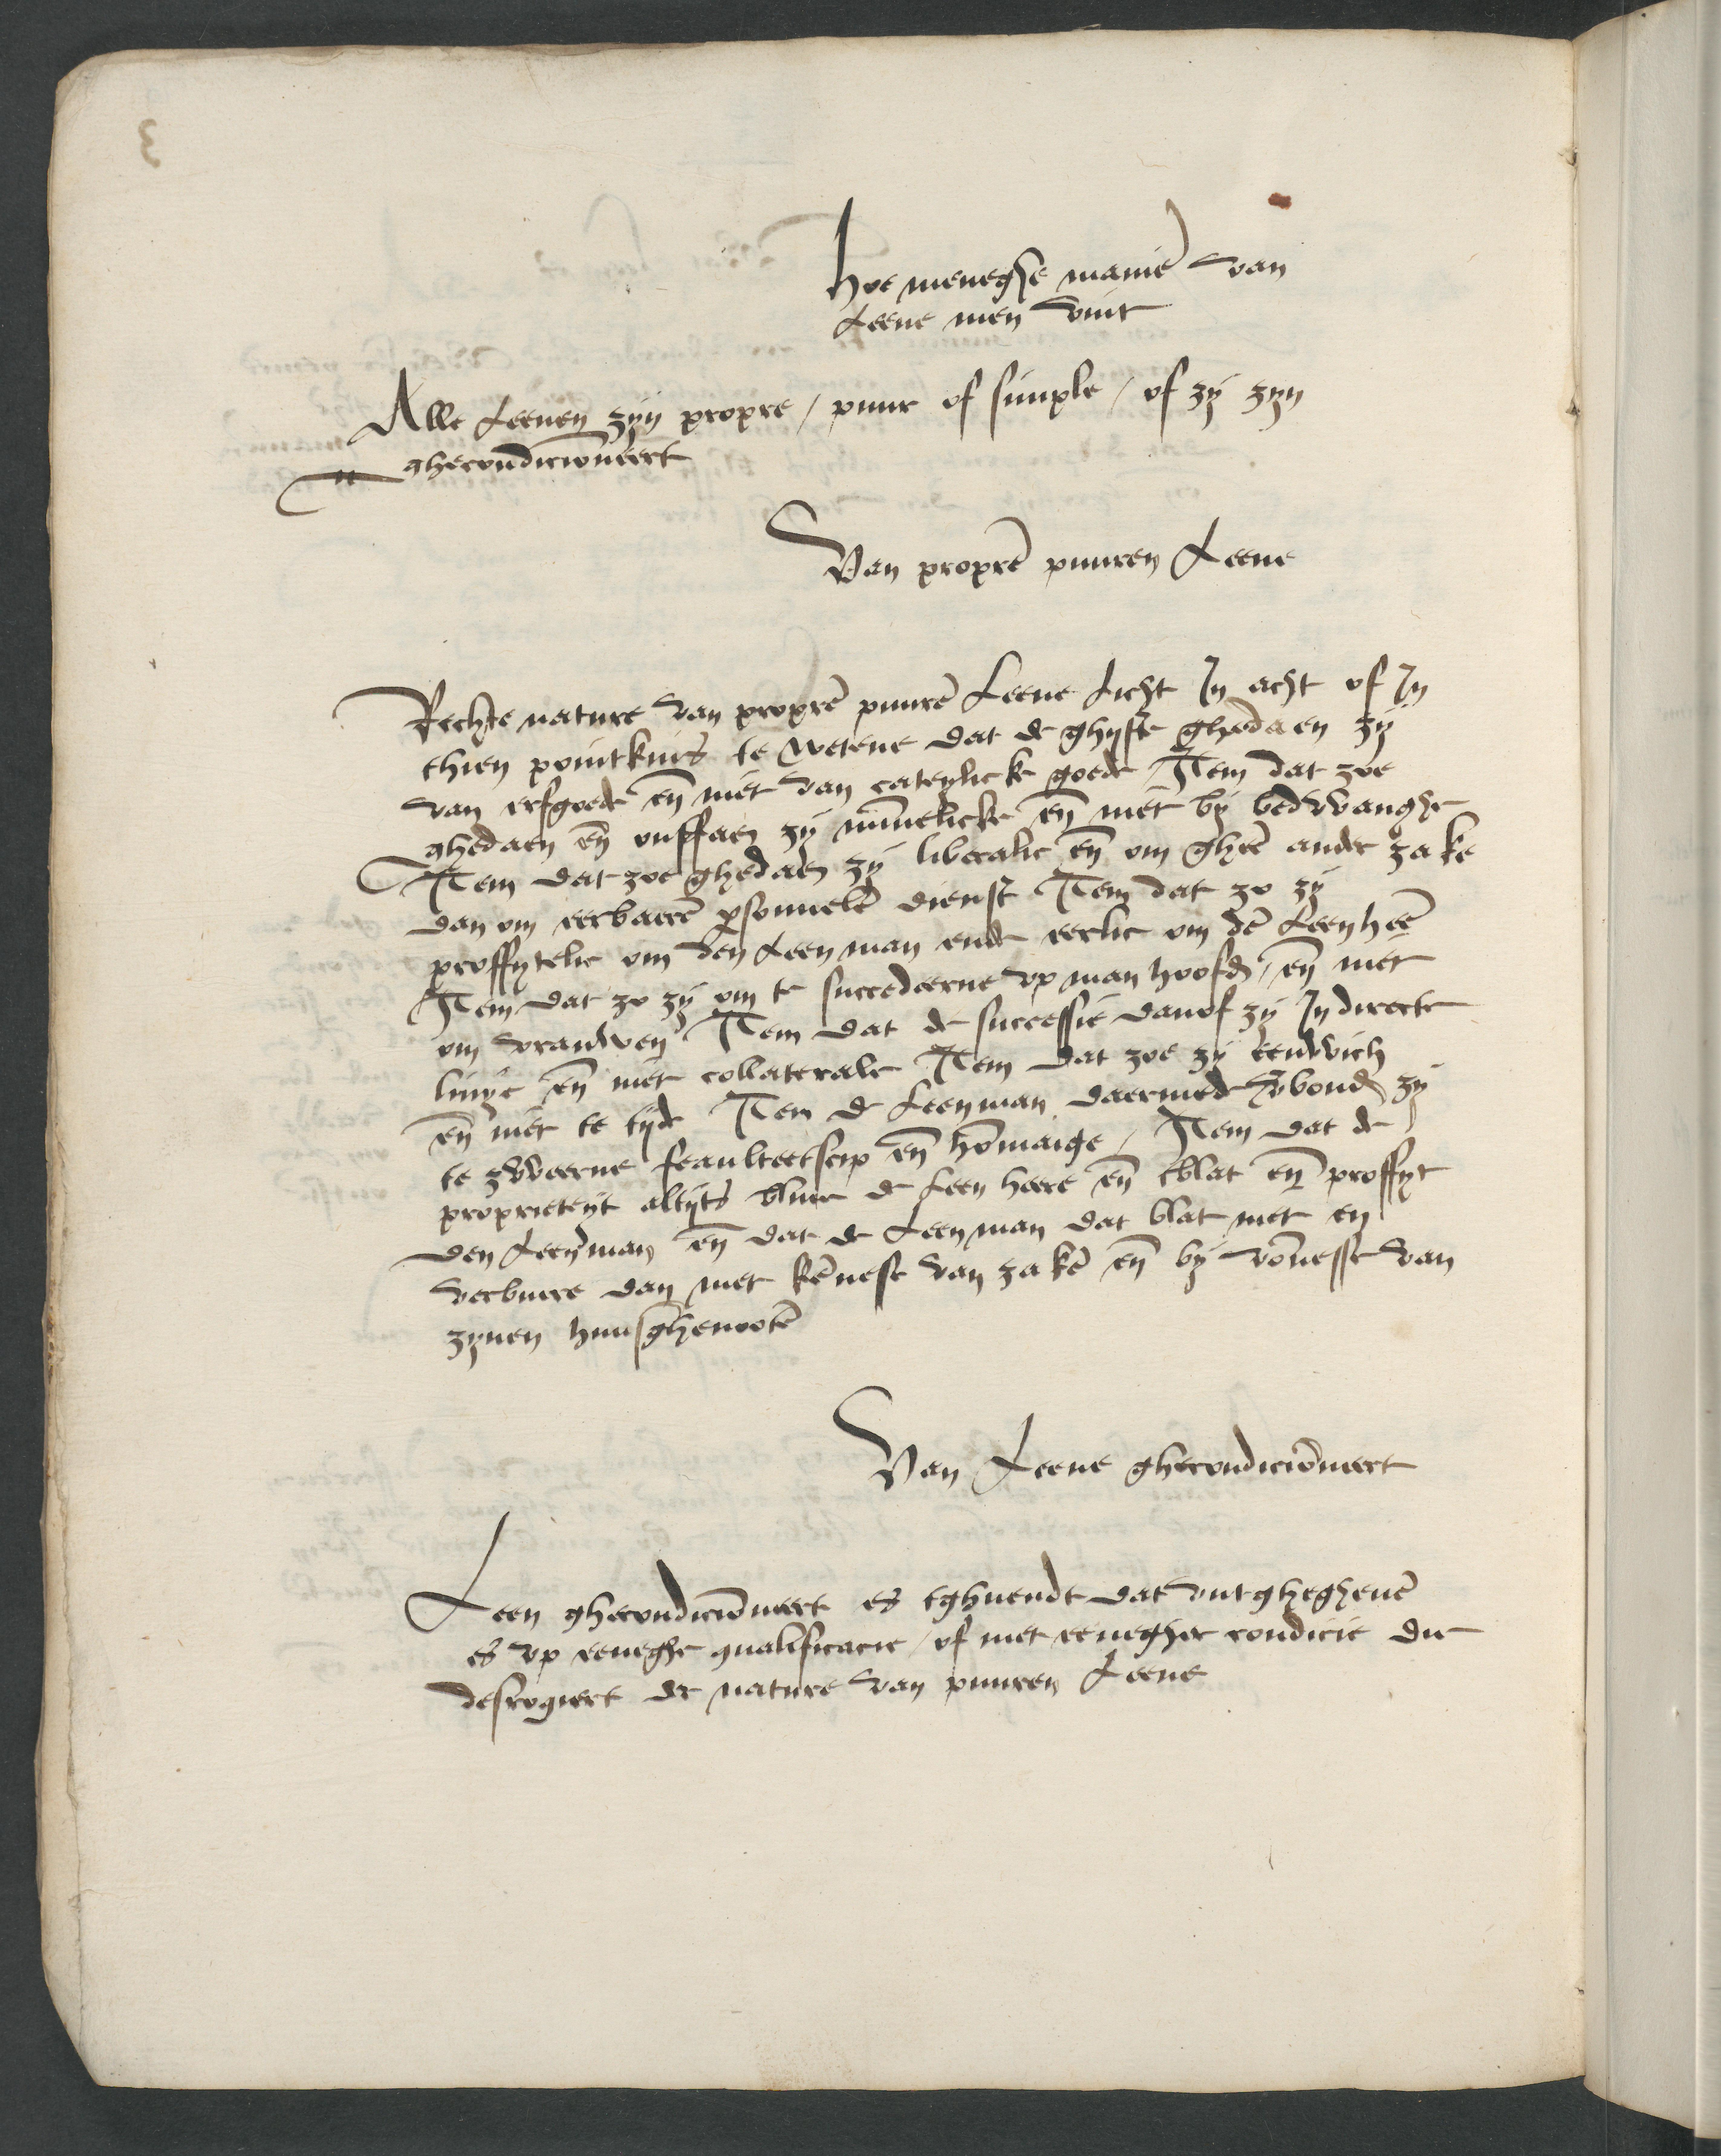 Hoe meneghe manie͂ van
Leene men vint
Alle Leenen zijn propre / puur of simple / of zij zyn
ghecondicionneert
Van propre͂ puuren Leene
Rechte nature van propre͂ puure͂ Leene licht In acht of In
thien pointkins te wetene dat de ghyfte ghedaen zij
van erfgoede en͂ niet van cateylicke goede Item dat zoe
ghedaen en͂ ontfaen zij minnelicke en͂ niet bij bedwanghe
Item dat zoe ghedaen zij liberalic en͂ om ghee͂ ander zake
dan om eerbaere͂ psonnele͂ dienst Item dat zo zij
proffytelic om den Leenman ende eerlic om de͂ Leenhee͂
Item dat zo zij om te succedeerne up manhoofd / en͂ niet
om vrauwen Item dat de successie danof zij In directe
linye en͂ niet collaterale Item dat zoe zij eeuwich
en͂ niet te tijde Item de Leenman daermede vbond zij
te zweerne feaulteetscip en͂ ho͂maige / Item dat de
proprieteyt altijts bliue de Leenheere en͂ tblat en͂ proffyt
den Leenman en͂ dat de Leenman dat blat niet en
verbuere dan met ke͂nesse van zake͂ en͂ bij vo͂nesse van
zynen huusghenoote͂
Van Leene ghecondicio͂neert
Leen ghecondicio͂neert es tghuendt dat uutghegheue͂
es up eeneghe qualificacie / of met eenegher condicie die
desrogiert de nature van puuren Leene